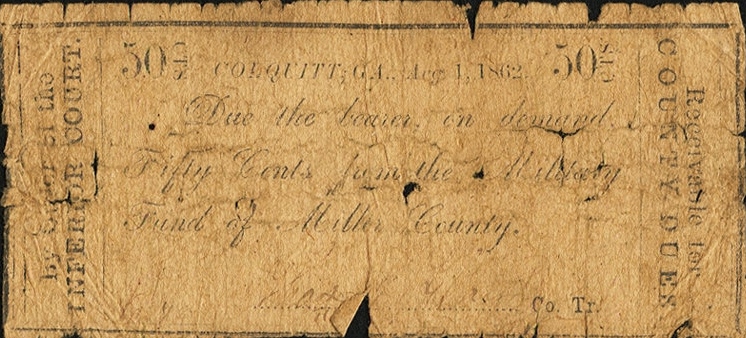 By Order of the
INFERIOR COURT.
50 CTS COLQUITT, GA., Aug. 1, 1862. 50 CTS
Due the bearer, on demand,
Fifty Cents from the Military
Fund of Miller County.
Co. Tr.
Receivable for
COUNTY DUES